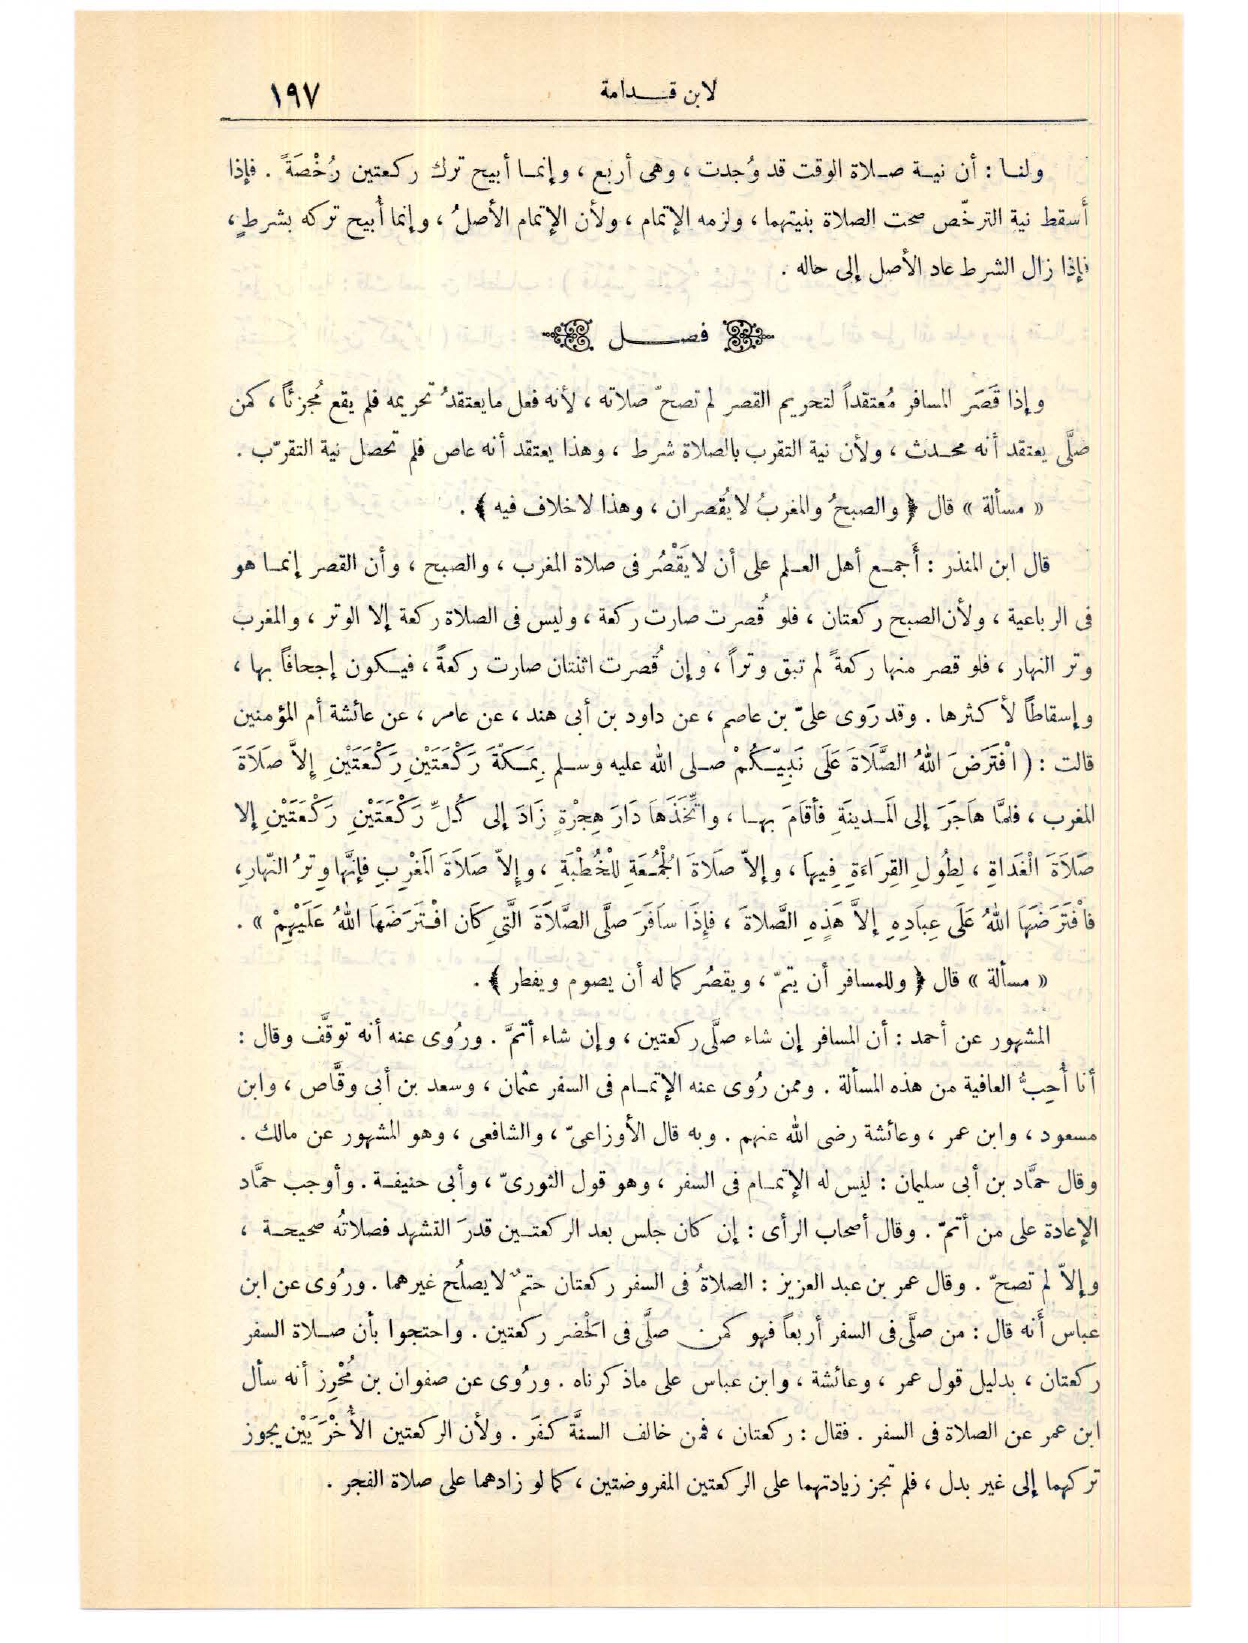 لابن قدامة ١٩٧
ولنا : أن نية صلاة الوقت قد وُجدت ، وهى أربع ، وإنما أبيح ترك ركعتين رُخْصَةً . فإذا
أسقط نية الترخّص صحت الصلاة بنيتهما ، ولزمه الإتمام ، ولأن الإتمام الأصلُ ، وإنما أُبيح تركه بشرطٍ ،
فإذا زال الشرط عاد الأصل إلى حاله .
فصل
وإذا قَصَر المسافر مُعتقداً لتحريم القصر لم تصحّ صلاته ، لأنه فعل ما يعتقدُ تحريمه فلم يقع مُجزئاً ، كمن
صلَّى يعتقد أنه محدث ، ولأن نية التقرب بالصلاة شرط ، وهذا يعتقد أنه عاص فلم تحصل نية التقرّب .
« مسألة » قال ﴿ والصبحُ والمغربُ لا يُقصران ، وهذا لا خلاف فيه ﴾ .
قال ابن المنذر : أَجمع أهل العلم على أن لا يَقْصُر فى صلاة المغرب ، والصبح ، وأن القصر إنما هو
فى الرباعية ، ولأن الصبح ركعتان ، فلو قُصرت صارت ركعة ، وليس فى الصلاة ركعة إلا الوتر ، والمغرب
وتر النهار ، فلو قصر منها ركعةً لم تبق وتراً ، وإن قُصرت اثنتان صارت ركعةً ، فيكون إجحافاً بها ،
وإسقاطاً لأكثرها . وقد رَوى علىّ بن عاصم ، عن داود بن أبى هند ، عن عامر ، عن عائشة أم المؤمنين
قالت : ( افْتَرَضَ اللهُ الصَّلَاةَ عَلَى نَبِيِّكُمْ صلى الله عليه وسلم بِمَكَّةَ رَكْعَتَيْنِ رَكْعَتَيْنِ إِلاَّ صَلَاَةَ
المغرب ، فلمَّا هَاجَرَ إلى المَدينَةِ فأقَامَ بها ، واتَّخَذَهَا دَارَ هِجْرَةٍ زَادَ إلى كُلِّ رَكْعَتَيْنِ رَكْعَتَيْنِ إلا
صَلَاَةَ الْغَدَاةِ ، لِطُولِ القِرَاءَةِ فِيهَا ، وإلاّ صَلَاةَ الْجُمُعَةِ لِلْخُطْبَةِ ، وإلاّ صَلَاةَ المَغْرِبِ فإنَّهَا وِترُ النّهارِ ،
فافْتَرَضَهَا اللهُ عَلَى عِبَادِهِ إلاَّ هَذِهِ الصَّلاةَ ، فإذَا سافَرَ صلَّى الصَّلَاَةَ الَّتِى كَان افْتَرَضَهَا اللهُ عَلَيْهِمْ » .
« مسألة » قال ﴿ وللمسافر أن يتمّ ، ويقصُر كما له أن يصوم ويفطر ﴾ .
المشهور عن أحمد : أن المسافر إن شاء صلَّى ركعتين ، وإن شاء أتمَّ . ورُوى عنه أنه توقَّف وقال :
أنا أُحِبُّ العافية من هذه المسألة . وممن رُوى عنه الإتمام فى السفر عثمان ، وسعد بن أبى وقَّاص ، وابن
مسعود ، وابن عمر ، وعائشة رضى الله عنهم . وبه قال الأوزاعىّ ، والشافعى ، وهو المشهور عن مالك .
وقال حمَّاد بن أبى سليمان : ليْس له الإتمام فى السفر ، وهو قول الثورىّ ، وأبى حنيفة . وأوجب حمَّاد
الإعادة على من أتمّ . وقال أصحاب الرأى : إن كان جلس بعد الركعتين قدرَ التشهد فصلاتُه صحيحة ،
وإلاّ لم تصحّ . وقال عمر بن عبد العزيز : الصلاةُ فى السفر ركعتان حتمٌ لا يصلُح غيرهما . ورُوى عن ابن
عباس أَنه قال : من صلَّى فى السفر أربعاً فهو كمن صلَّى فى الحْضر ركعتين . واحتجوا بأن صلاة السفر
ركعتان ، بدليل قول عمر ، وعائشة ، وابن عباس على ماذكرناه . ورُوى عن صفوان بن مُحْرِز أنه سأل
ابن عمر عن الصلاة فى السفر . فقال : ركعتان ، فمن خالف السنَّة كفَرَ . ولأن الركعتين الأُخْرَيَيْن يجوز
تركهما إلى غير بدل ، فلم تجز زيادتهما على الركعتين المفروضتين ، كما لو زادهما على صلاة الفجر .